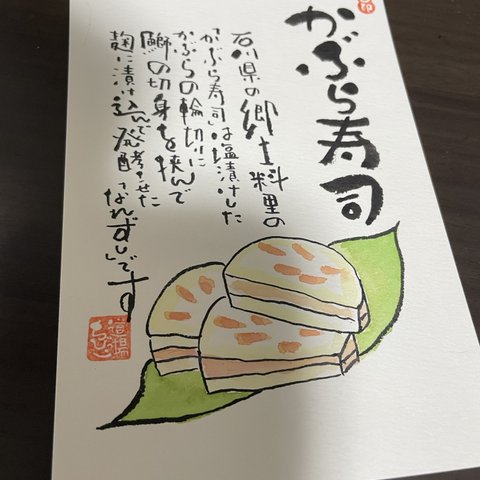 かぶら寿司
石川県の郷土料理の
「かぶら寿司」は塩漬けした
かぶらの輪切りに
鰤の切身を挟んで
麹に漬け込んで発酵させた
「なれずし」です